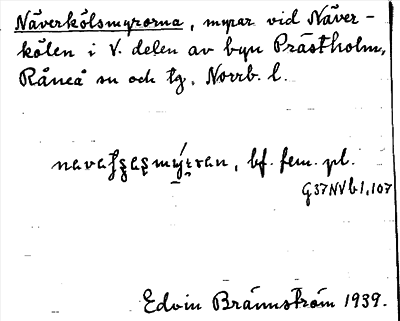 Näverkölsmyrorna, myrar vid Näver-
kölen i V. delen av byn Prästholm,
Råneå sn och tg, Norrb. l.
bf. fem. pl.
G37NVb1,107
Edvin Brännström 1939.